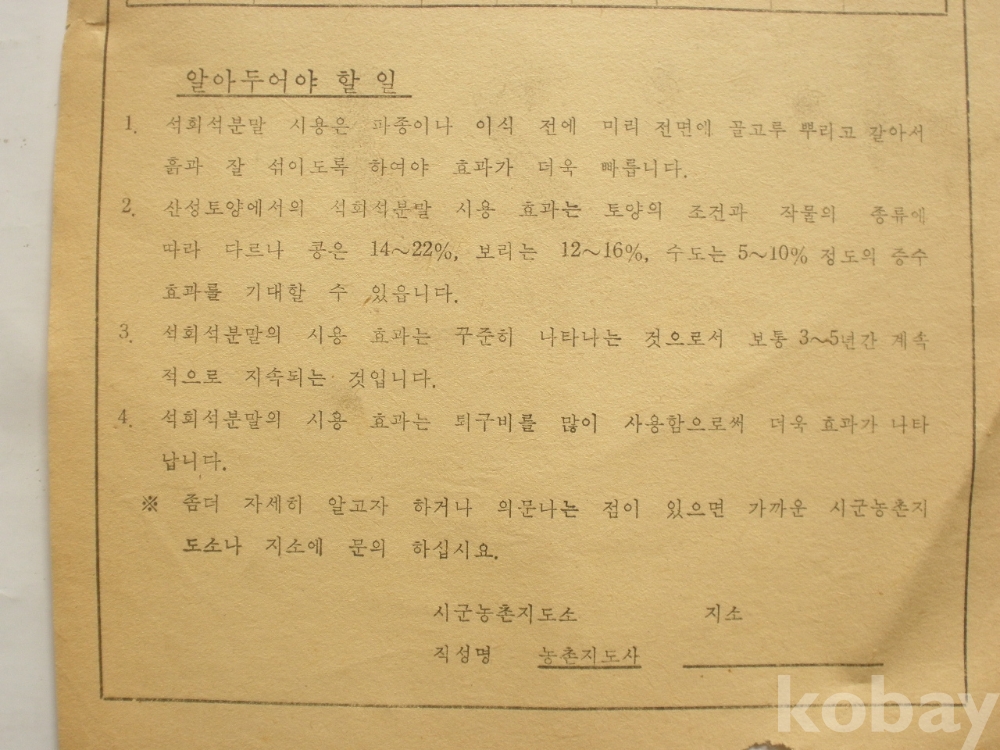 알아두어야 할 일
1. 석회석분말 시용은 파종이나 이식 전에 미리 전면에 골고루 뿌리고 갈아서
흙과 잘 섞이도록 하여야 효과가 더욱 빠릅니다.
2. 산성토양에서의 석회석분말 시용 효과는 토양의 조건과 작물의 종류에
따라 다르나 콩은 14~22%, 보리는 12~16%, 수도는 5~10% 정도의 증수
효과를 기대할 수 있읍니다.
3. 석회석분말의 시용 효과는 꾸준히 나타나는 것으로서 보통 3~5년간 계속
적으로 지속되는 것입니다.
4. 석회석분말의 시용 효과는 퇴구비를 많이 사용함으로써 더욱 효과가 나타
납니다.
※ 좀더 자세히 알고자 하거나 의문나는 점이 있으면 가까운 시군농촌지
도소나 지소에 문의 하십시요.
시군농촌지도소 지소
직성명 농촌지도사
kobay